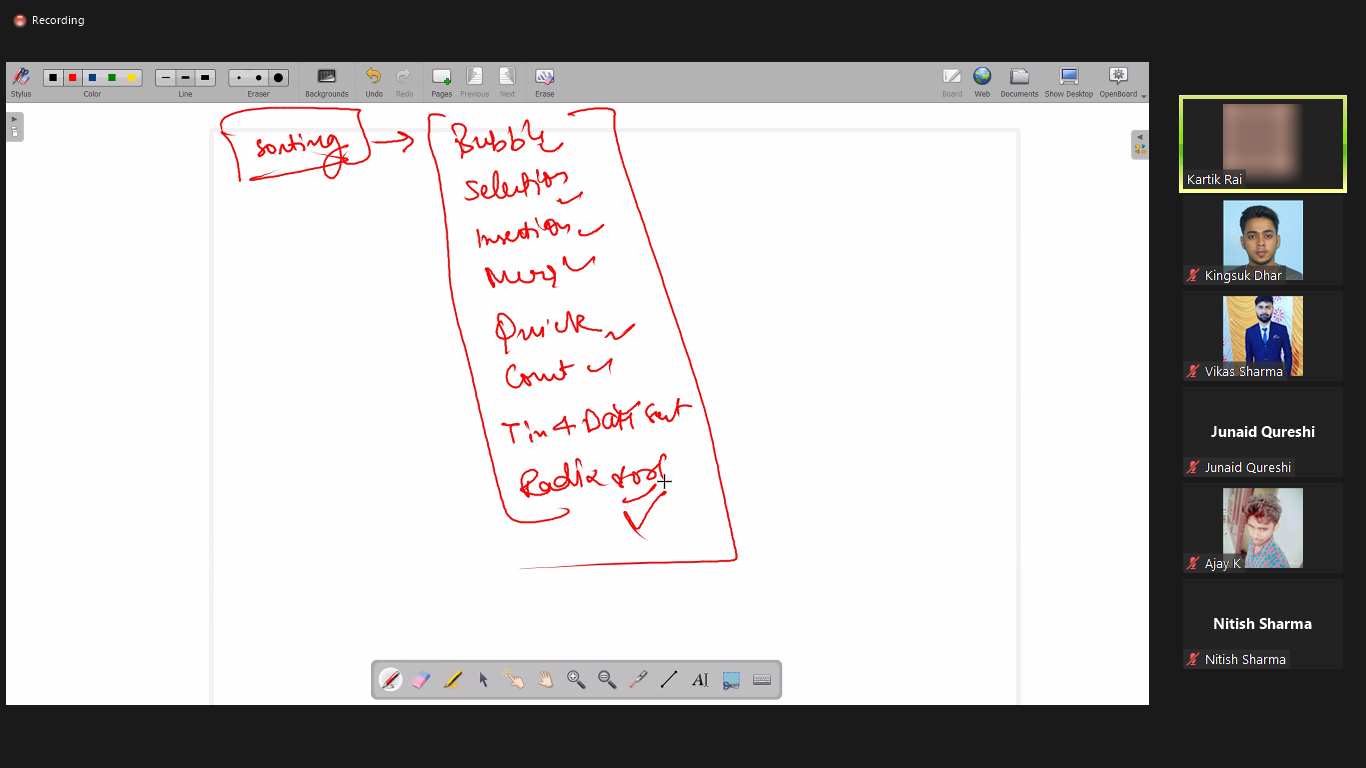 Recording
Stylus
Color
Line
Eraser
Backgrounds
Undo
Redo
Pages
Previous
Next
Erase
Board
Web
Documents
Show Desktop
OpenBoard
sorting
Bubble
Selection
Insertion
Merg
Quick
Count
Radix sort
AI
Kartik Rai
Kingsuk Dhar
Vikas Sharma
Junaid Qureshi
Junaid Qureshi
Ajay K
Nitish Sharma
Nitish Sharma